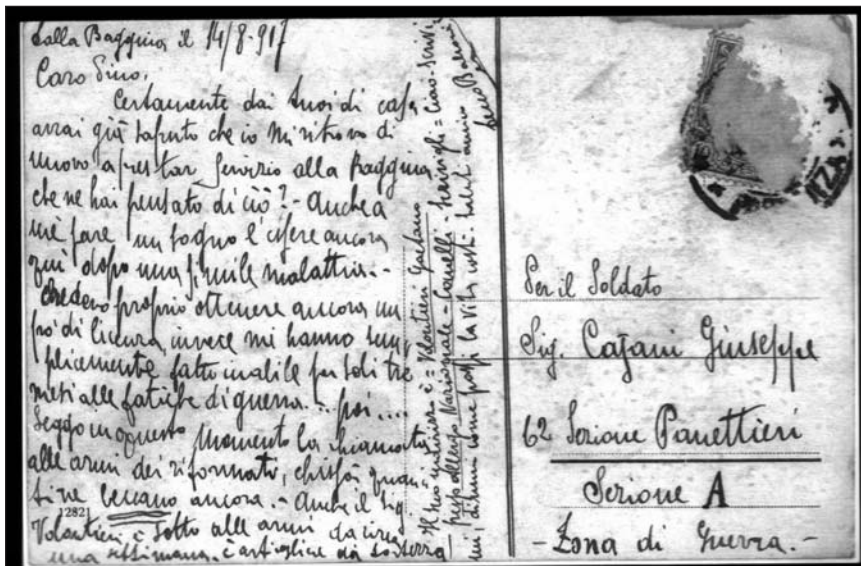 dalla Baggina, il 14/8-917
Caro Pino,
Certamente dai tuoi di casa
avrai già saputo che io mi ritrovo di
nuovo a prestar servizio alla Baggina
che ne hai pensato di ciò? - Anche a
me pare un sogno l'essere ancora
quì dopo una simile malattia. -
Credevo proprio ottenere ancora un
pò di licenza, invece mi hanno sem-
plicemente fatto inabile per soli tre
mesi alle fatiche di guerra... poi....
Leggo in questo momento la chiamata
alle armi dei riformati, chissà quan-
ti ne beccano ancora. - Anche il Sig.
1282
Volontieri è sotto alle armi da circa
una settimana. è artigliere da fortezza
Il suo indirizzo è = Volontieri Gaetano
presso Albergo Nazionale - = Ciao - scrivi
mi, dimmi come passi la vita costì. Saluti amico
Per il Soldato
Sig. Casani Giuseppe
62 Sezione Panettieri
Sezione A
- Zona di Guerra. -